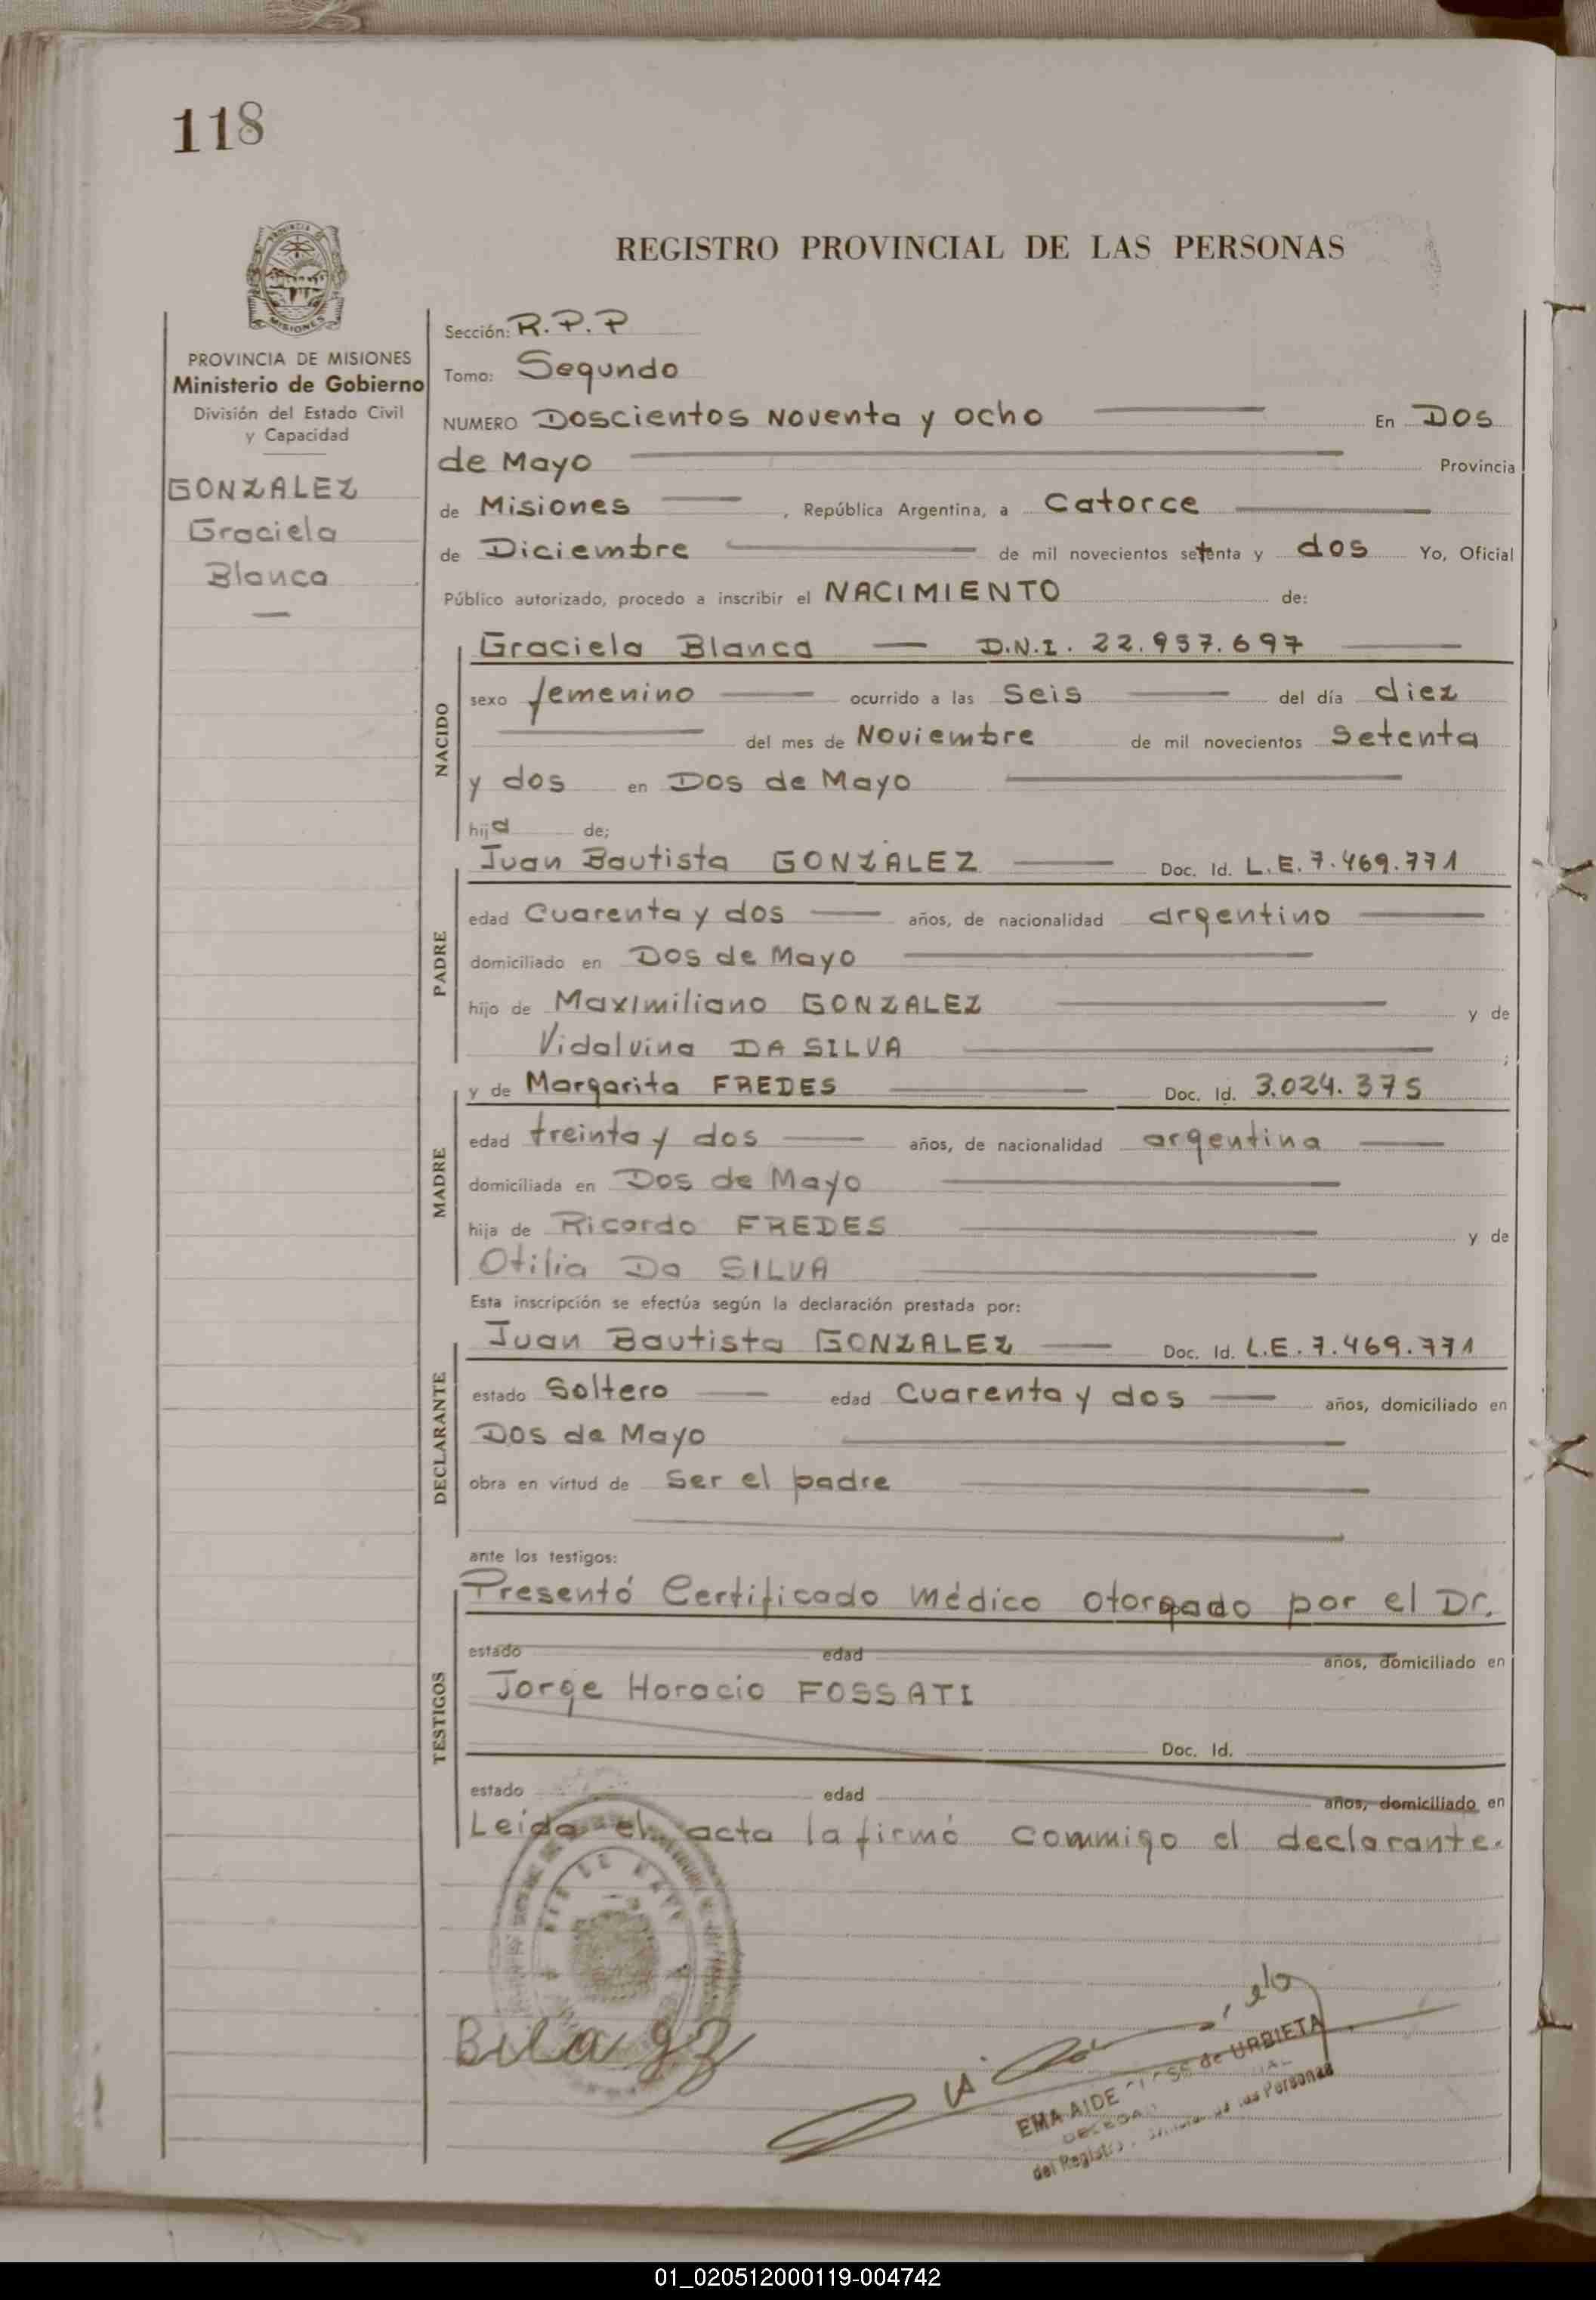 118
REGISTRO PROVINCIAL DE LAS PERSONAS
MISIONES
PROVINCIA DE MISIONES
Ministerio de Gobierno
División del Estado Civil
y Capacidad
GONZALEZ
Graciela
Blanca
Sección: R.P.P
Tomo: Segundo
NUMERO Doscientos Noventa y ocho En Dos
de Mayo Provincia
de Misiones, República Argentina, a Catorce
de Diciembre de mil novecientos setenta y dos Yo, Oficial
Público autorizado, procedo a inscribir el NACIMIENTO de:
NACIDO
Graciela Blanca — D.N.I. 22.957.697
sexo femenino ocurrido a las Seis del día diez
del mes de Noviembre de mil novecientos Setenta
y dos en Dos de Mayo
hija de;
PADRE
Juan Bautista GONZALEZ Doc. Id. L.E. 7.469.771
edad Cuarenta y dos años, de nacionalidad argentino
domiciliado en Dos de Mayo
hijo de Maximiliano GONZALEZ y de
Vidalvina DA SILVA ;
MADRE
y de Margarita FREDES Doc. Id. 3.024.375
edad treinta y dos años, de nacionalidad argentina
domiciliada en Dos de Mayo
hija de Ricardo FREDES y de
Otilia Da SILVA
Esta inscripción se efectúa según la declaración prestada por:
DECLARANTE
Juan Bautista GONZALEZ Doc. Id. L.E. 7.469.771
estado Soltero edad Cuarenta y dos años, domiciliado en
Dos de Mayo
obra en virtud de Ser el padre
ante los testigos:
TESTIGOS
Presentó Certificado médico otorgado por el Dr.
estado edad años, domiciliado en
Jorge Horacio FOSSATI
Doc. Id.
estado edad años, domiciliado en
Leída el acta la firmó commigo el declarante.
EMA AIDE de URBIETA
del Registro de las Personas
01_020512000119-004742